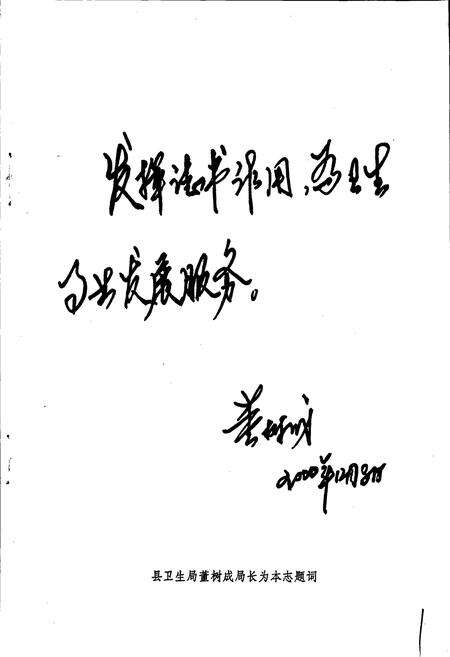 发挥志书作用，为卫生
事业发展服务。
董树成
2000年12月
县卫生局董树成局长为本志题词